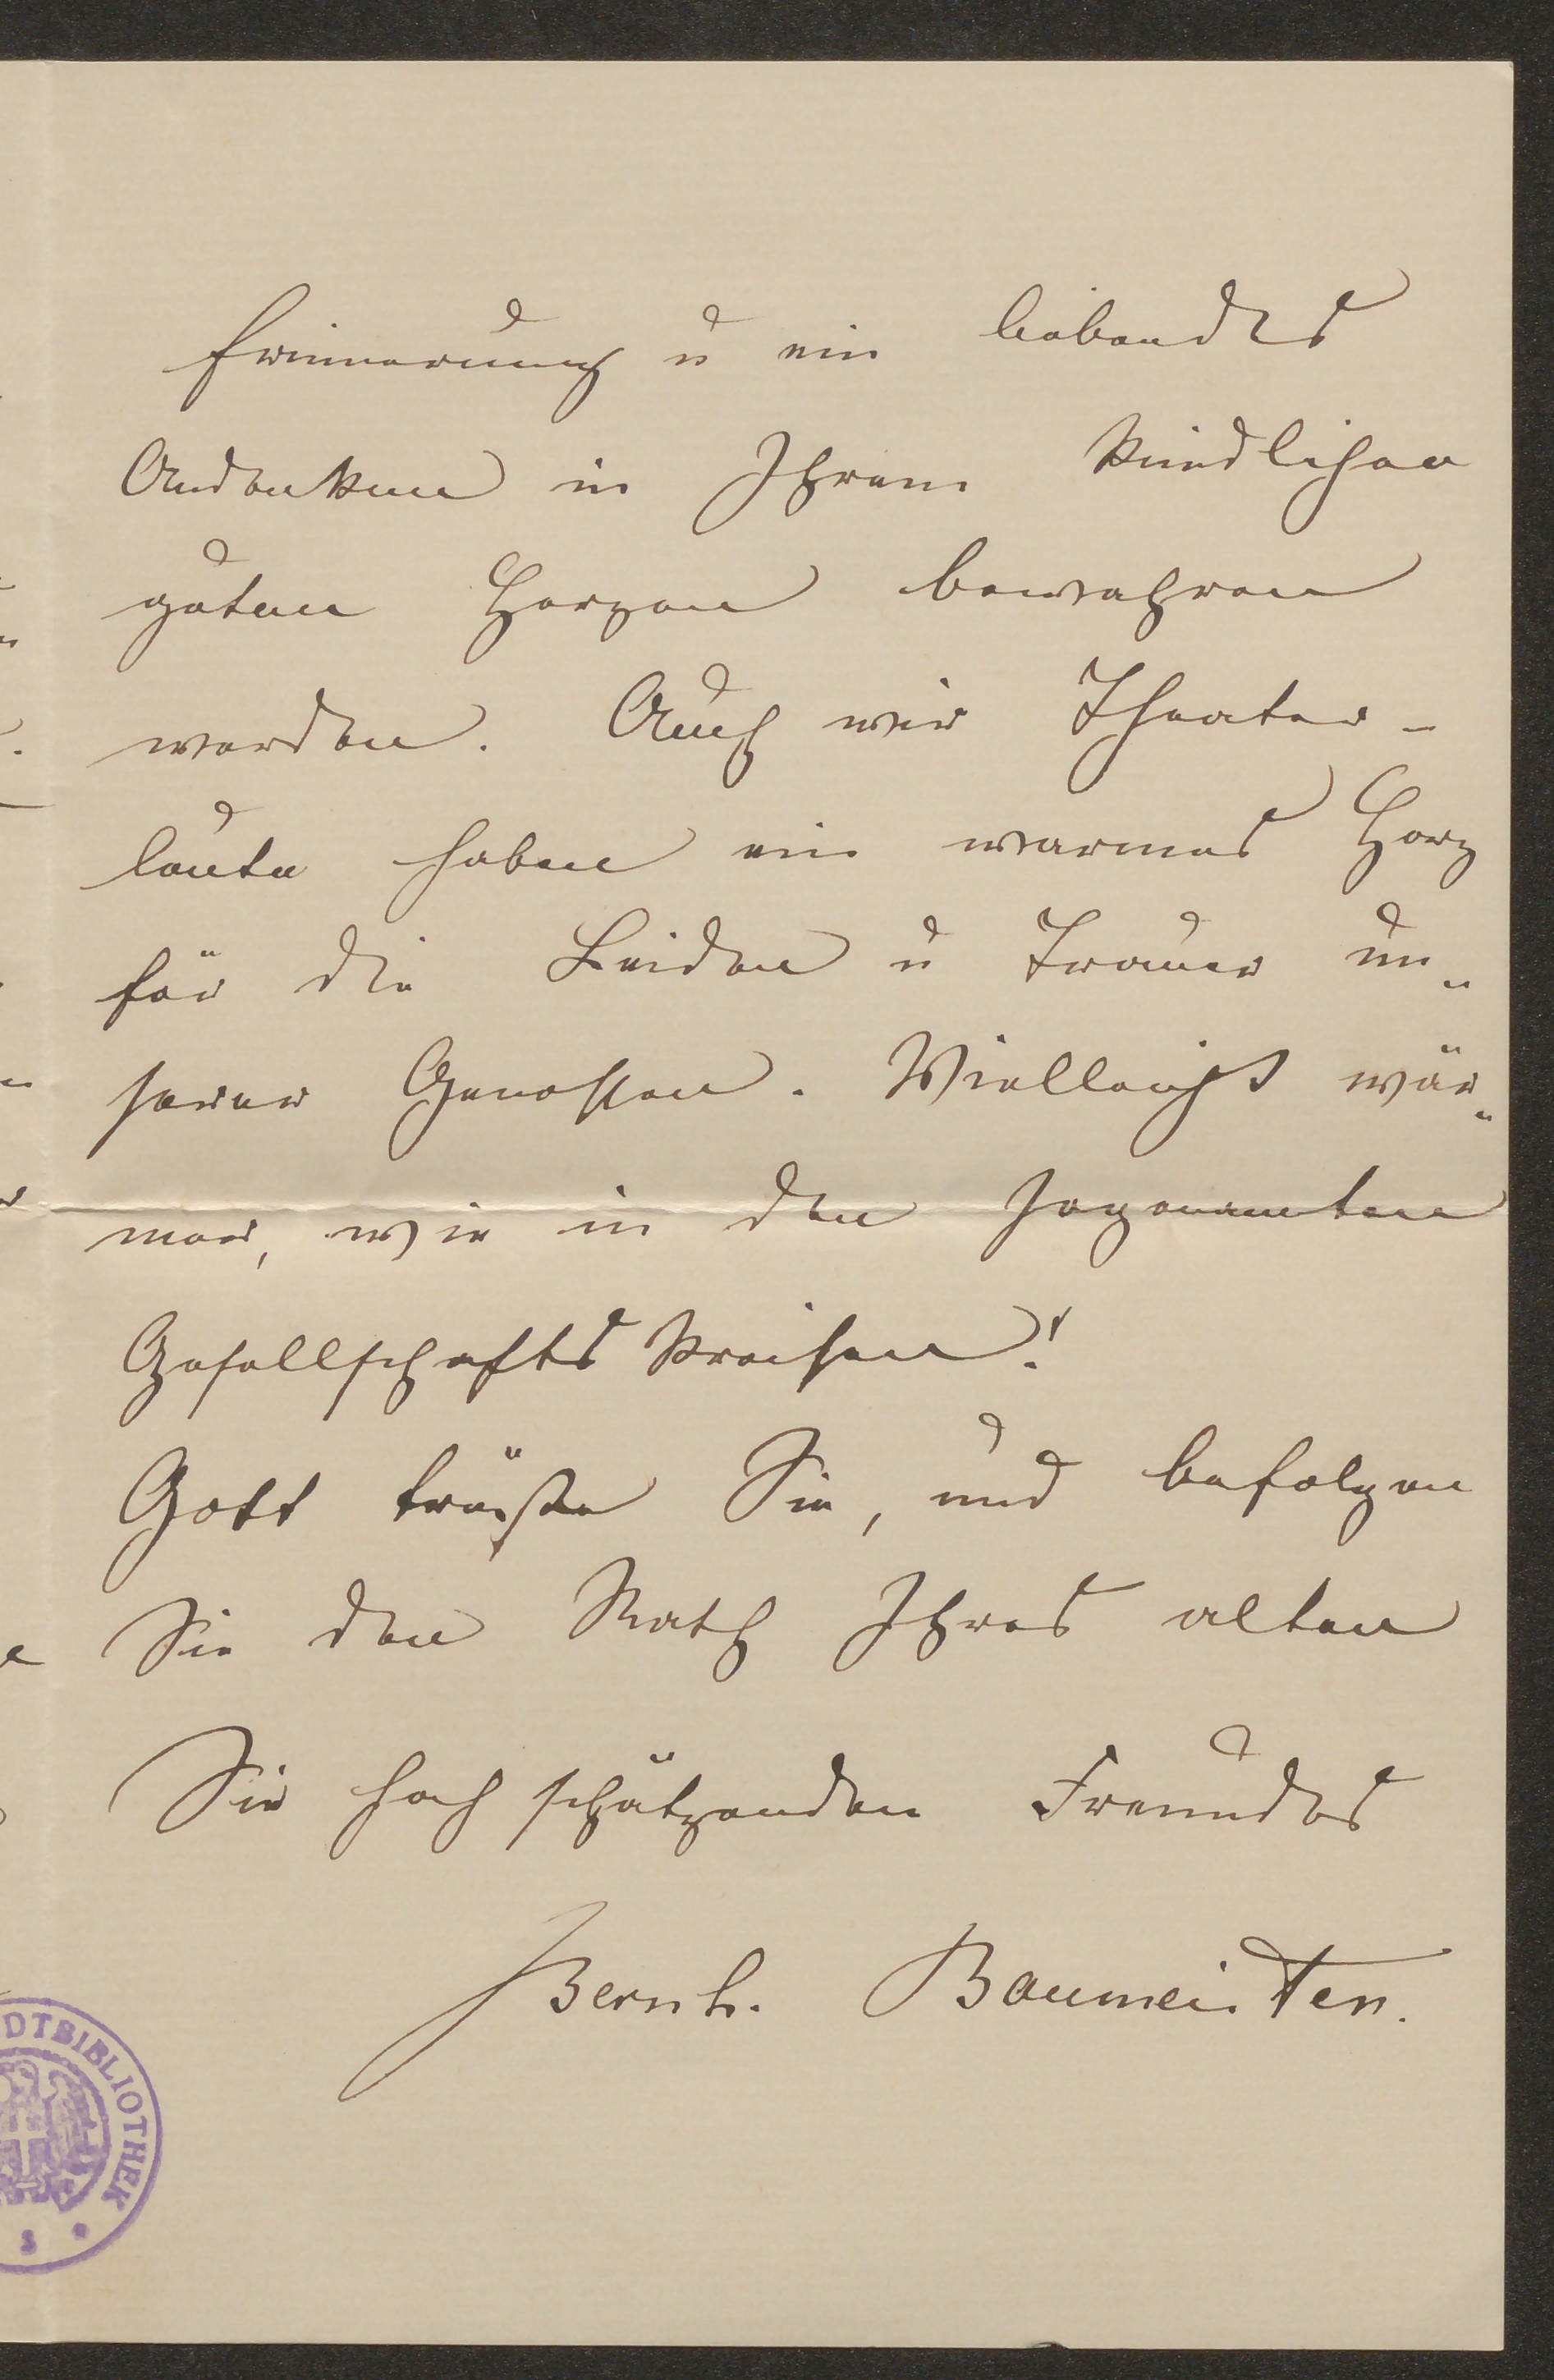 Erinnerung u ein liebendes
Andenken in Ihrem kindlichen
guten Herzen bewahren
werden. Auch wir Theater-
leute haben ein warmes Herz
für die Leiden u Trauer un„
serer Genossen. Vielleicht wär„
mer, wie in den sogenannten
Gesellschafts Kreisen!
Gott tröste Sie, und befolgen
Sie den Rath Ihres alten
Sie hoch schätzenden Freundes
Bernh. Baumeister.
DTBIBLIOTHEK